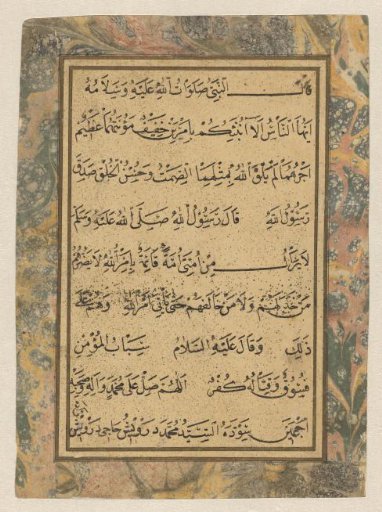 قال النبي صلوات الله عليه وسلامه
ايها الناس الا انبئكم بامرين خفيف مؤنتهما عظيم
اجرهما لم يلق الله بمثلهما الصمت وحسن الخلق صدق
رسول الله قال رسول الله صلى الله عليه وسلم
لا يزال من امتي امة قائمة بامر الله لا يضرهم
من خذلهم ولا من خالفهم حتى ياتي امر الله وهم على
ذلك وقال عليه السلام سباب المؤمن
فسوق وقتاله كفر اللهم صل على محمد واله وصحبه
اجمعين سوده السيد محمد درويش حاجي درويش